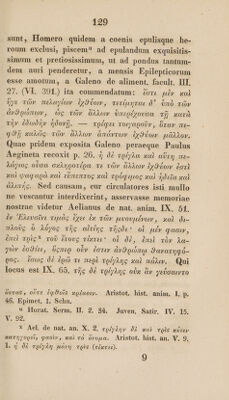 129
sunt, Homero quidem a coenis epulisque he-
roum exclusi, piscem" ad epulandum exquisitis-
simum et pretiosissimum, ut ad pondus tantum-
dem auri penderetur, a mensis Epilepticorum
esse amotum, a Galeno de aliment. facult. III.
27. (VI. 391.) ita commendatum: ἔστι μὲν καὶ
ἥγε τῶν πελαγίων ἰχθύων, τετίμηται δ' ὑπὸ τῶν
ἀνθρώπων, ὡς τῶν ἄλλων ὑπερέχουσα τῇ κατὰ
τὴν ἐδωδὴν ἡδονῇ. — τρέφει τοιγαροῦν, ὅταν πε-
φθῇ καλῶς τῶν ἄλλων ἁπάντων ἰχθύων μᾶλλον.
Quae pridem exposita Galeno peraeque Paulus
Aegineta recoxit p. 26. ἡ δὲ τρίγλα καὶ αὐτὴ πε-
λάγιος οὖσα σκληροτέρα τε τῶν ἄλλων ἰχθύων ἐστὶ
καὶ ψαφαρὰ καὶ εὔπεπτος καὶ τρόφιμος καὶ ἡδεῖα καὶ
ἀλιπής. Sed causam, cur circulatores isti mullo
ne vescantur interdixerint, asservasse memoriae
nostrae videtur Aelianus de nat. anim. IX. 51.
ἐν Ἐλευσῖνι τιμὰς ἔχει ἐκ τῶν μυουμένων, καὶ δι-
πλοῦς ὁ λόγος τῆς αἰτίης τῆςδε· οἱ μέν φασιν,
ἐπεὶ τρὶςˣ τοῦ ἔτους τίκτει· οἱ δὲ, ἐπεὶ τὸν λα-
γὼν ἐσθίει, ὅςπερ οὖν ἐστιν ἀνθρώπῳ θανατηφό-
ρος. ἴσως δὲ ἐρῶ τι περὶ τρίγλης καὶ πάλιν. Qui
locus est IX. 65. τῆς δὲ τρίγλης οὐκ ἂν γεύσαιντο
Aristot. hist. anim. I. p.
46. Epimet. I. Schn.
u Horat. Serm. II. 2. 34. Juven. Satir. IV. 15.
V. 92.
x Ael. de nat. an. X. 2. τρίγλην δὲ καὶ τρὶς κύειν
κατηγορεῖ, φασίν, καὶ τὸ ὄνομα. Aristot. hist. an. V. 9,
1. ἡ δὲ τρίγλη μόνη τρὶς (τίκτει).
9